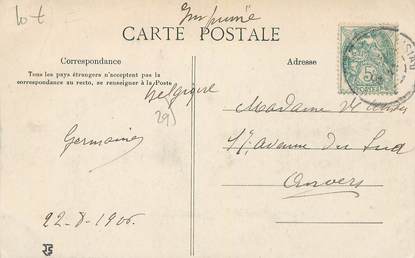 Imprimé
CARTE POSTALE
Correspondance
Adresse
Tous les pays étrangers n'acceptent pas la
correspondance au recto, se renseigner à la Poste
Belgique
(29)
Germaine
Madame
Avenue du Sud
Anvers
22-8-1906
5c
POSTES